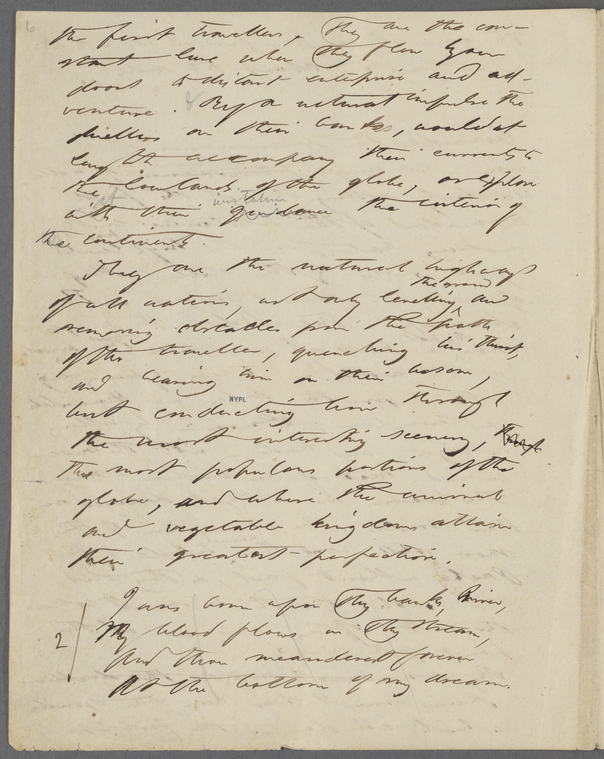 6
the first travellers. They are the con-
stant lure when they flow by our
doors to distant enterprise and ad-
venture. & By a natural impulse the
dwellers on their banks, would at
length accompany their currents to
the lowlands of the globe, or explore
at their invitation
with their guidance the interior of
the continents.
They are the natural highways
of all nations, not only levelling the ground and
removing obstacles from the path
of the traveller, quenching his thirst,
and bearing him on their bosom,
but conducting him through
NYPL
the most interesting scenery,
the most populous portions of the
globe, and where the animal
and vegetable kingdoms attain
their greatest perfection.
I was born upon thy bank, River,
2/ My blood flows in thy stream,
And thou meanderest forever
At the bottom of my dream.